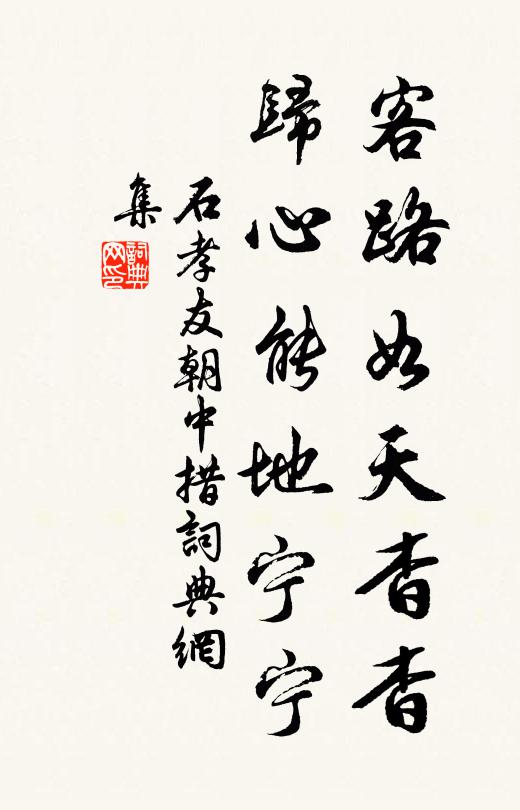 客路如天杳杳
歸心能地宁宁
石孝友朝中措詞典網
集
詞典网印